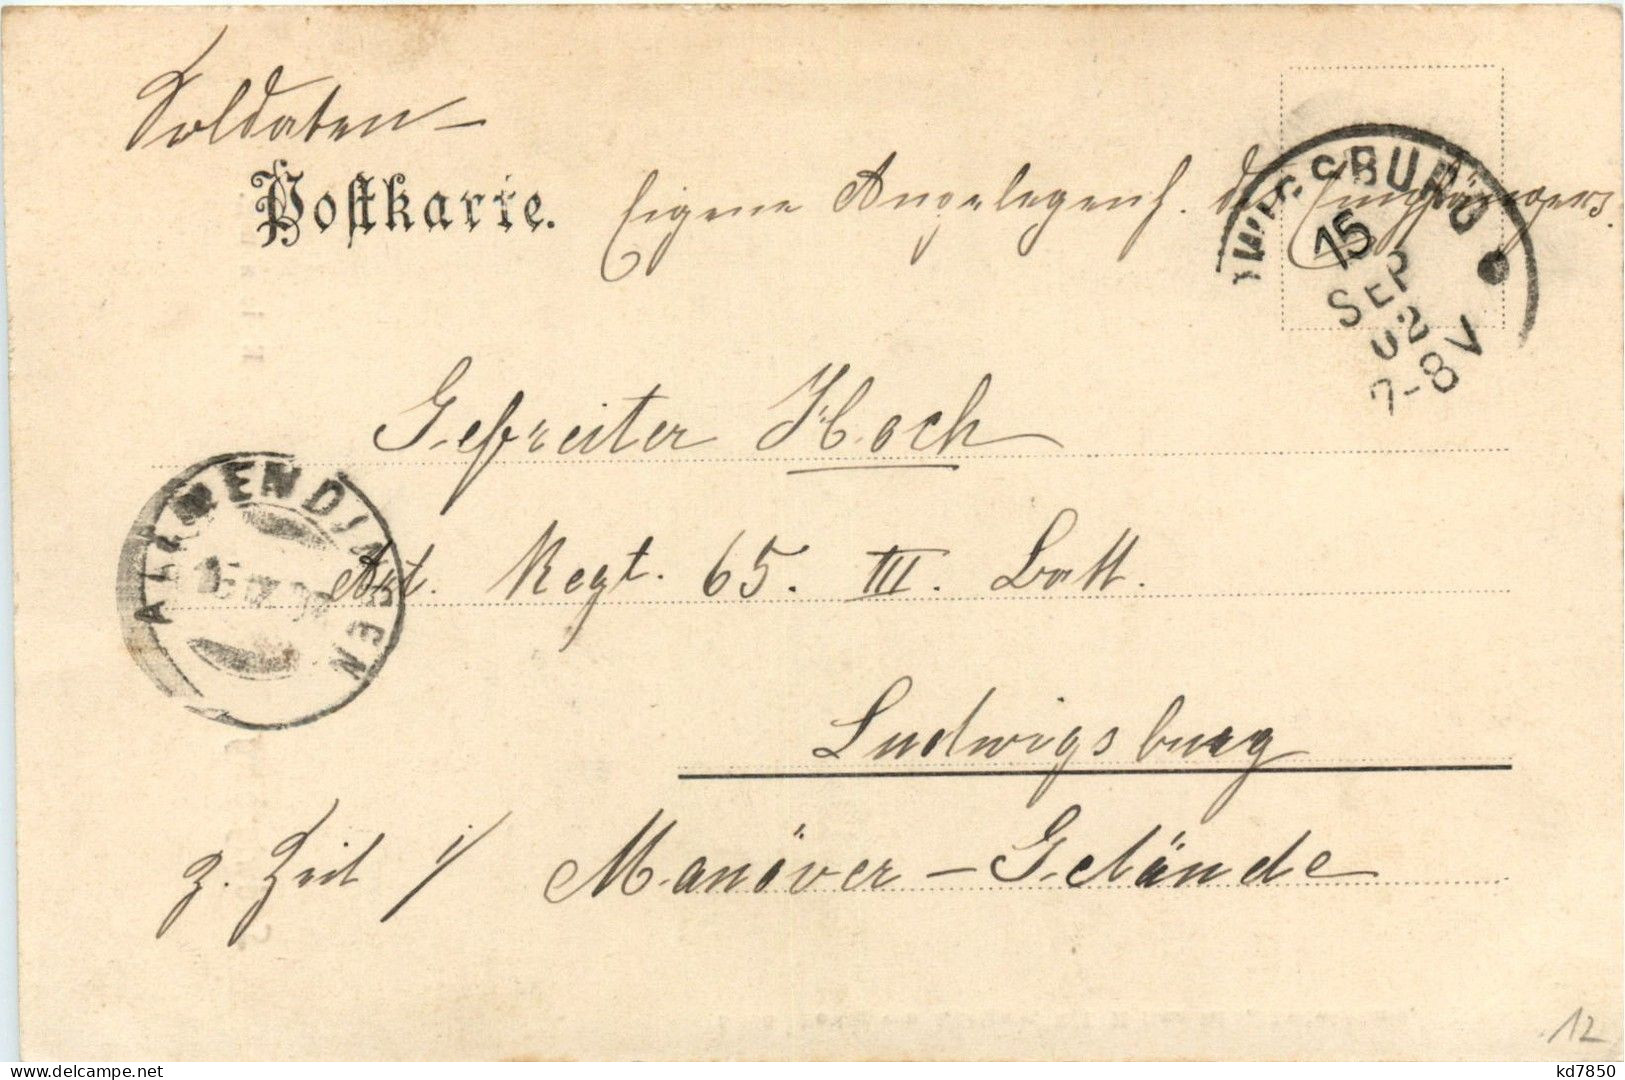 Soldaten-
Postkarte. Eigene Angelegenh. des Empfängers.
15
SEP
02
7-8V
Gefreiter Hoch
ALLMENDINGEN
Art. Regt. 65. III. Batt.
Ludwigsburg
z. Zeit i/ Manöver-Gelände
12
kd7850